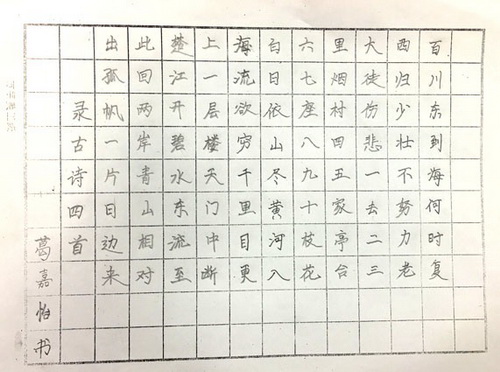 百川东到海何时复
西归少壮不努力老
大徒伤悲一去二三
里烟村四五家亭台
六七座八九十枝花
白日依山尽黄河入
海流欲穷千里目更
上一层楼天门中断
楚江开碧水东流至
此回两岸青山相对
出孤帆一片日边来
录古诗四首
葛嘉怡书